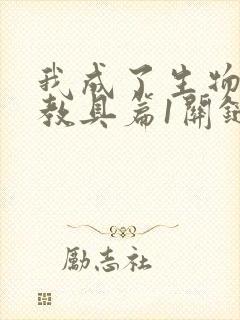 我成了生物
教具篇1關鍵
勵志社